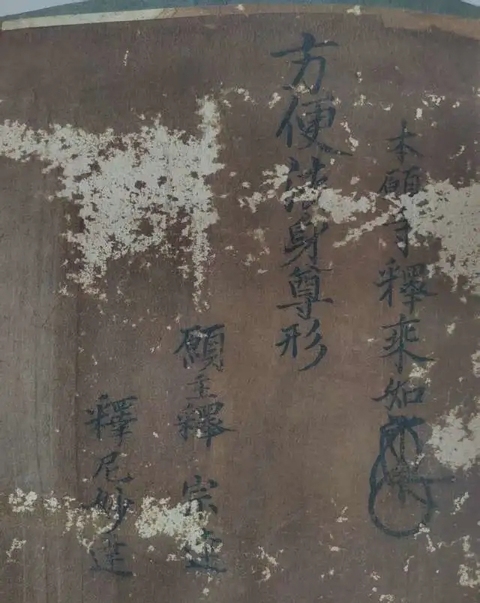 本願寺釋乘如
方便法身尊形
願主釋 宗達
釋尼妙蓮